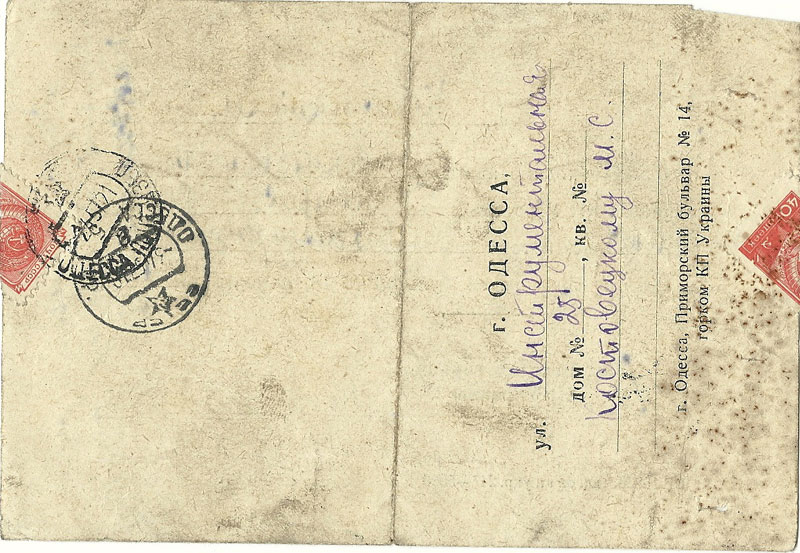 г. ОДЕССА,
ул. Инструментальная
дом № 25, кв. №
Костовецкому М. С.
г. Одесса, Приморский бульвар № 14,
горком КП Украины
40
ОДЕССА
ОДЕССА
СССР